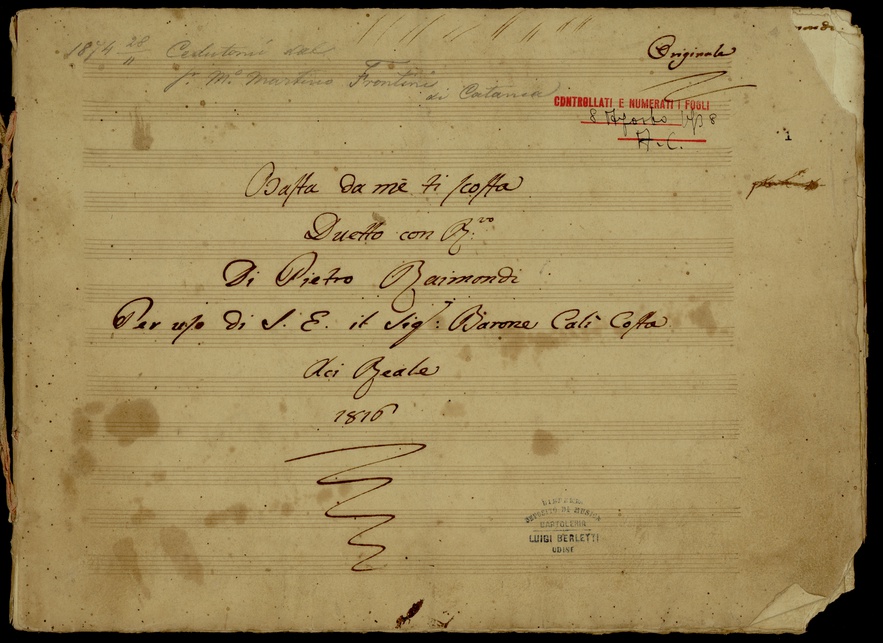 1874 28/11 Cedutomi dal
Sr. Mo. Martino Frontini
di Catania
Originale
CONTROLLATI E NUMERATI I FOGLI
8 Agosto 1938
A. C.
1
Basta da mè ti scosta
Duetto con R:vo
Di Pietro Raimondi
Per uso di S. E. il Sigr: Barone Calì Costa
Aci Reale
1816
DEPOSITO DI MUSICA
CARTOLERIA
LUIGI BERLETTI
UDINE